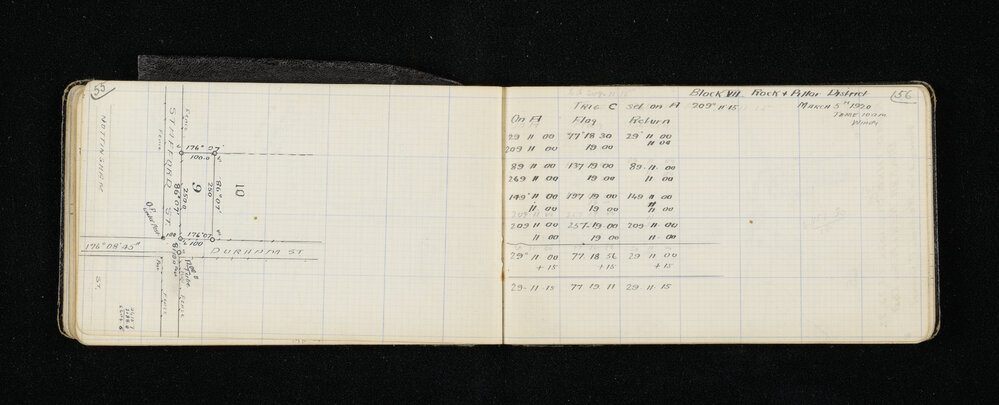 55
NOTTINGHAM
ST.
STAFFORD ST.
Fence
Fence
176° 07'
100.0
250.0
86° 07'
9
250
86° 07'
10
176° 07'
100
100
DURHAM ST
176° 08' 45"
O.P.
Fence
Fence
156
Block VII Rock & Pillar District
TRIG C set on A 209° 11 15
March 5th 1920
TIME 10 am
Windy
On A Flag Return
29 11 00 77° 18 30 29° 11 00
209 11 00 19 00 11 00
89 11 00 137 19 00 89 11 00
269 11 00 19 00 11 00
149° 11 00 197 19 00 149 11 00
11 00 19 00 11 00
209 11 00 257 19 00 209 11 00
11 00 19 00 11 00
29° 11 00 77 18 56 29 11 00
+ 15 + 15 + 15
29 11 15 77 19 11 29 11 15